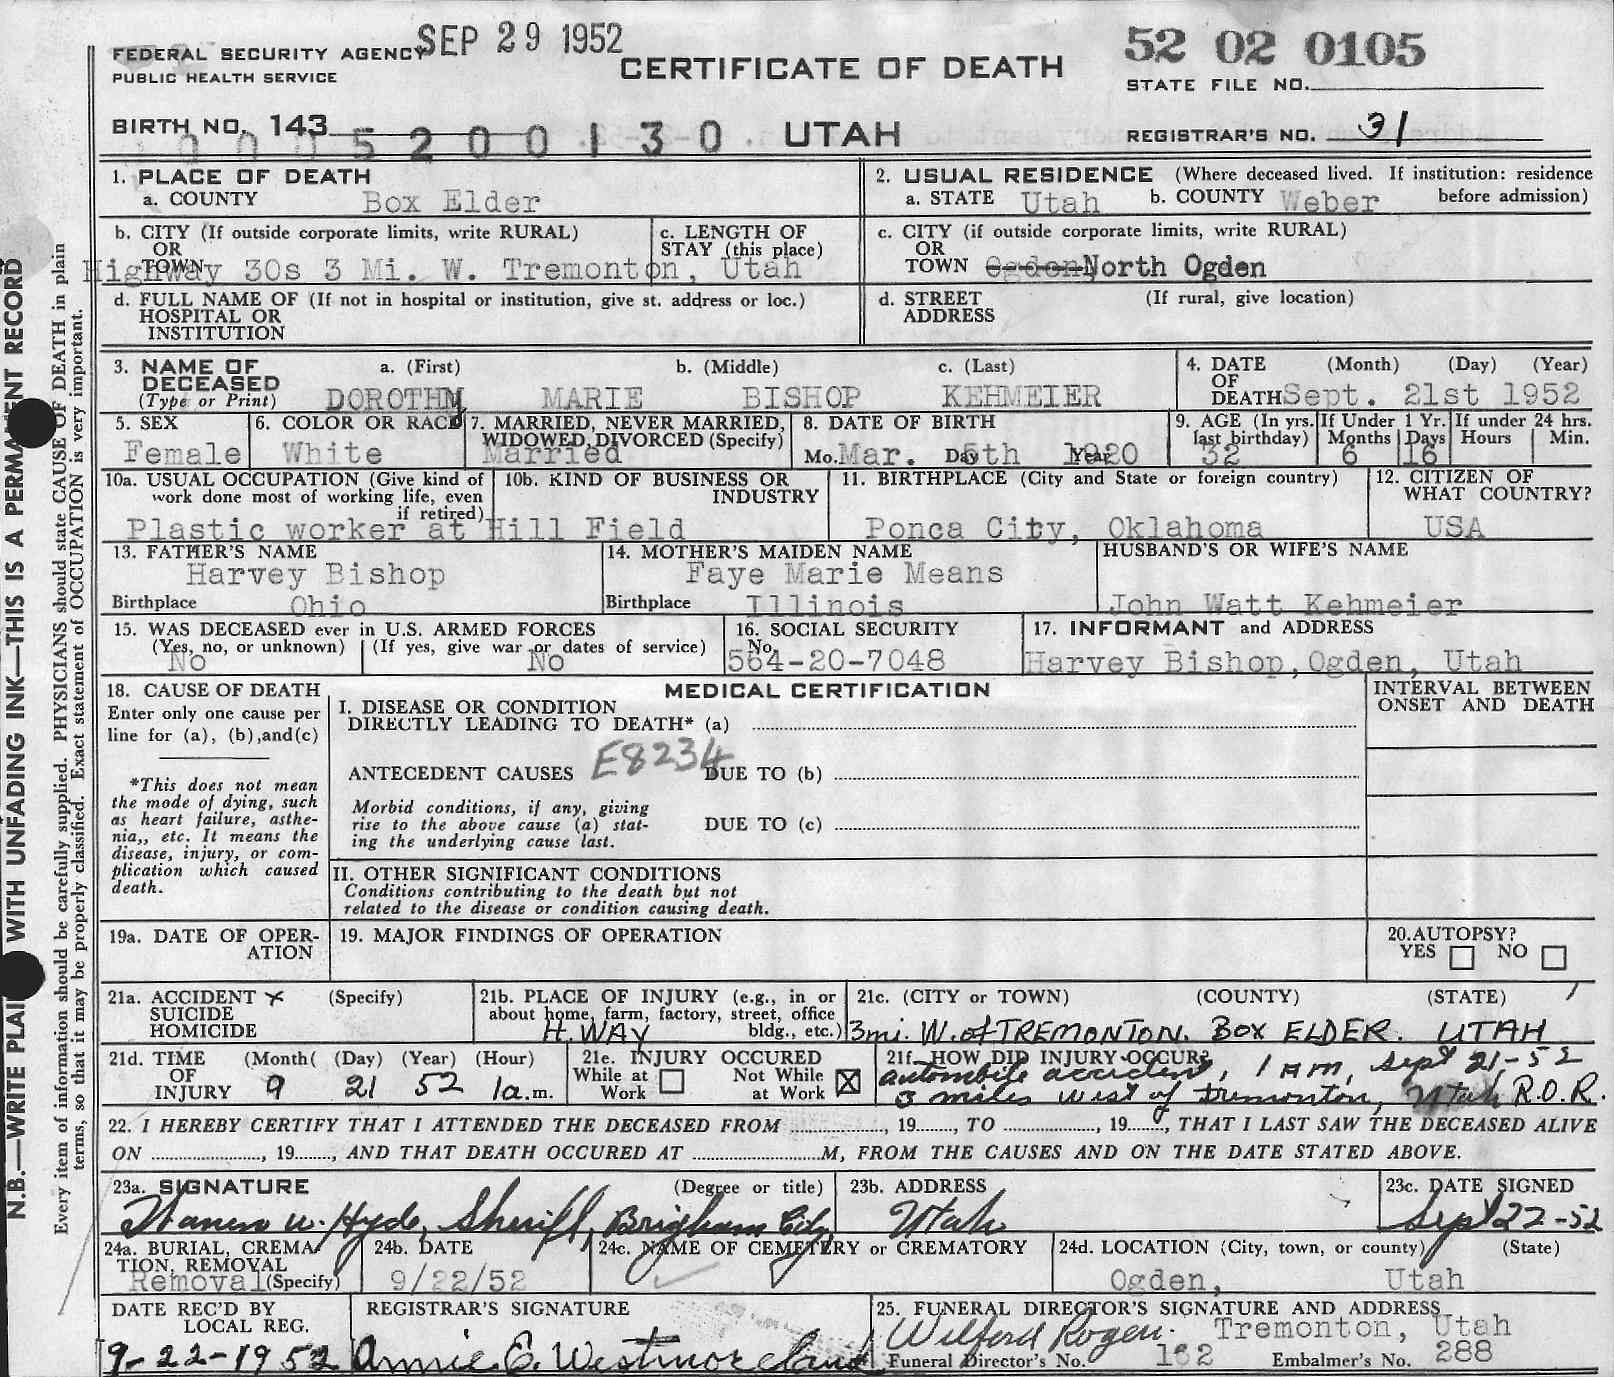 SEP 29 1952
FEDERAL SECURITY AGENCY
PUBLIC HEALTH SERVICE
CERTIFICATE OF DEATH
52 02 0105
STATE FILE NO.
BIRTH NO. 143
0005200130
UTAH
REGISTRAR'S NO. 31
1. PLACE OF DEATH
a. COUNTY Box Elder
2. USUAL RESIDENCE (Where deceased lived. If institution: residence before admission)
a. STATE Utah b. COUNTY Weber
b. CITY (If outside corporate limits, write RURAL)
OR
TOWN
Highway 30s 3 Mi. W. Tremonton, Utah
c. LENGTH OF
STAY (this place)
c. CITY (if outside corporate limits, write RURAL)
OR
TOWN Ogden North Ogden
d. FULL NAME OF (If not in hospital or institution, give st. address or loc.)
HOSPITAL OR
INSTITUTION
d. STREET (If rural, give location)
ADDRESS
3. NAME OF
DECEASED
(Type or Print)
a. (First) b. (Middle) c. (Last)
DOROTHY MARIE BISHOP KEHMEIER
4. DATE (Month) (Day) (Year)
OF
DEATH Sept. 21st 1952
5. SEX
Female
6. COLOR OR RACE
White
7. MARRIED, NEVER MARRIED,
WIDOWED, DIVORCED (Specify)
Married
8. DATE OF BIRTH
Mo. Mar. Day 5th Year 1920
9. AGE (In yrs. last birthday)
32
If Under 1 Yr.
Months Days
6 16
If under 24 hrs.
Hours Min.
10a. USUAL OCCUPATION (Give kind of
work done most of working life, even
if retired)
10b. KIND OF BUSINESS OR
INDUSTRY
Plastic worker at Hill Field
11. BIRTHPLACE (City and State or foreign country)
Ponca City, Oklahoma
12. CITIZEN OF
WHAT COUNTRY?
USA
13. FATHER'S NAME
Harvey Bishop
Birthplace Ohio
14. MOTHER'S MAIDEN NAME
Faye Marie Means
Birthplace Illinois
HUSBAND'S OR WIFE'S NAME
John Watt Kehmeier
15. WAS DECEASED ever in U.S. ARMED FORCES
(Yes, no, or unknown) (If yes, give war or dates of service)
No No
16. SOCIAL SECURITY
No.
564-20-7048
17. INFORMANT and ADDRESS
Harvey Bishop, Ogden, Utah
18. CAUSE OF DEATH
Enter only one cause per
line for (a), (b), and (c)
*This does not mean
the mode of dying, such
as heart failure, asthe-
nia,, etc. It means the
disease, injury, or com-
plication which caused
death.
MEDICAL CERTIFICATION
I. DISEASE OR CONDITION
DIRECTLY LEADING TO DEATH* (a)
ANTECEDENT CAUSES E8234 DUE TO (b)
Morbid conditions, if any, giving
rise to the above cause (a) stat-
ing the underlying cause last.
DUE TO (c)
II. OTHER SIGNIFICANT CONDITIONS
Conditions contributing to the death but not
related to the disease or condition causing death.
INTERVAL BETWEEN
ONSET AND DEATH
19a. DATE OF OPER-
ATION
19. MAJOR FINDINGS OF OPERATION
20. AUTOPSY?
YES NO
21a. ACCIDENT x (Specify)
SUICIDE
HOMICIDE
21b. PLACE OF INJURY (e.g., in or
about home, farm, factory, street, office
bldg., etc.)
H. WAY
21c. (CITY or TOWN) (COUNTY) (STATE)
3mi. W. of TREMONTON. BOX ELDER. UTAH
21d. TIME (Month( (Day) (Year) (Hour)
OF
INJURY 9 21 52 1a.m.
21e. INJURY OCCURED
While at Work Not While at Work X
21f. HOW DID INJURY OCCUR?
automobile accident, 1 AM, Sept 21-52
3 miles west of Tremonton, Utah R.O.R.
22. I HEREBY CERTIFY THAT I ATTENDED THE DECEASED FROM ............, 19......, TO ............, 19......, THAT I LAST SAW THE DECEASED ALIVE
ON ............, 19......, AND THAT DEATH OCCURED AT ............M, FROM THE CAUSES AND ON THE DATE STATED ABOVE.
23a. SIGNATURE (Degree or title)
W. Hyde, Sheriff, Brigham City,
23b. ADDRESS
Utah
23c. DATE SIGNED
Sept 22-52
24a. BURIAL, CREMA-
TION, REMOVAL
Removal (Specify)
24b. DATE
9/22/52
24c. NAME OF CEMETERY or CREMATORY
24d. LOCATION (City, town, or county) (State)
Ogden, Utah
DATE REC'D BY
LOCAL REG.
9-22-1952
REGISTRAR'S SIGNATURE
Annie E. Westmoreland
25. FUNERAL DIRECTOR'S SIGNATURE AND ADDRESS
Wilford Rogers. Tremonton, Utah
Funeral Director's No. 162 Embalmer's No. 288
N.B.—WRITE PLAINLY WITH UNFADING INK—THIS IS A PERMANENT RECORD
Every item of information should be carefully supplied. PHYSICIANS should state CAUSE OF DEATH in plain
terms, so that it may be properly classified. Exact statement of OCCUPATION is very important.